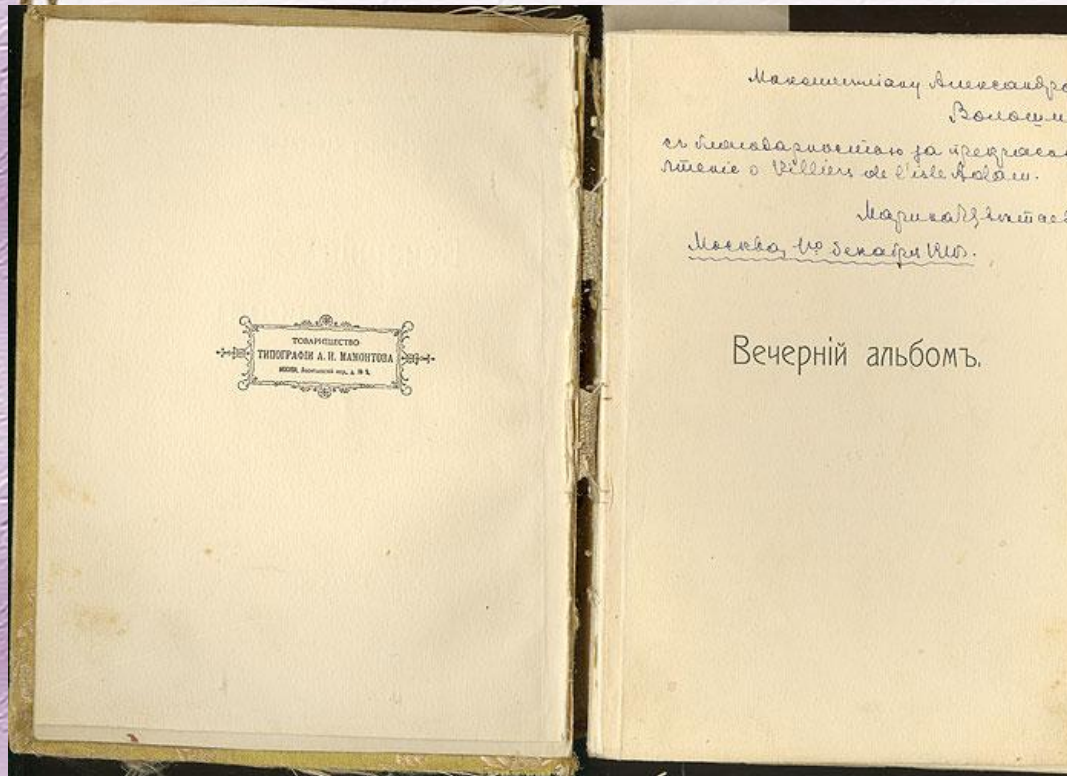 ТОВАРИЩЕСТВО
ТИПОГРАФІИ А. И. МАМОНТОВА
МОСКВА,
Максимилиану Александро
Волоши
съ благодарностью за прекрасн
чтеніе о Villiers de l'isle Adam.
Марина Цвѣтаев
Москва, 1го декабря 1910.
Вечерній альбомъ.